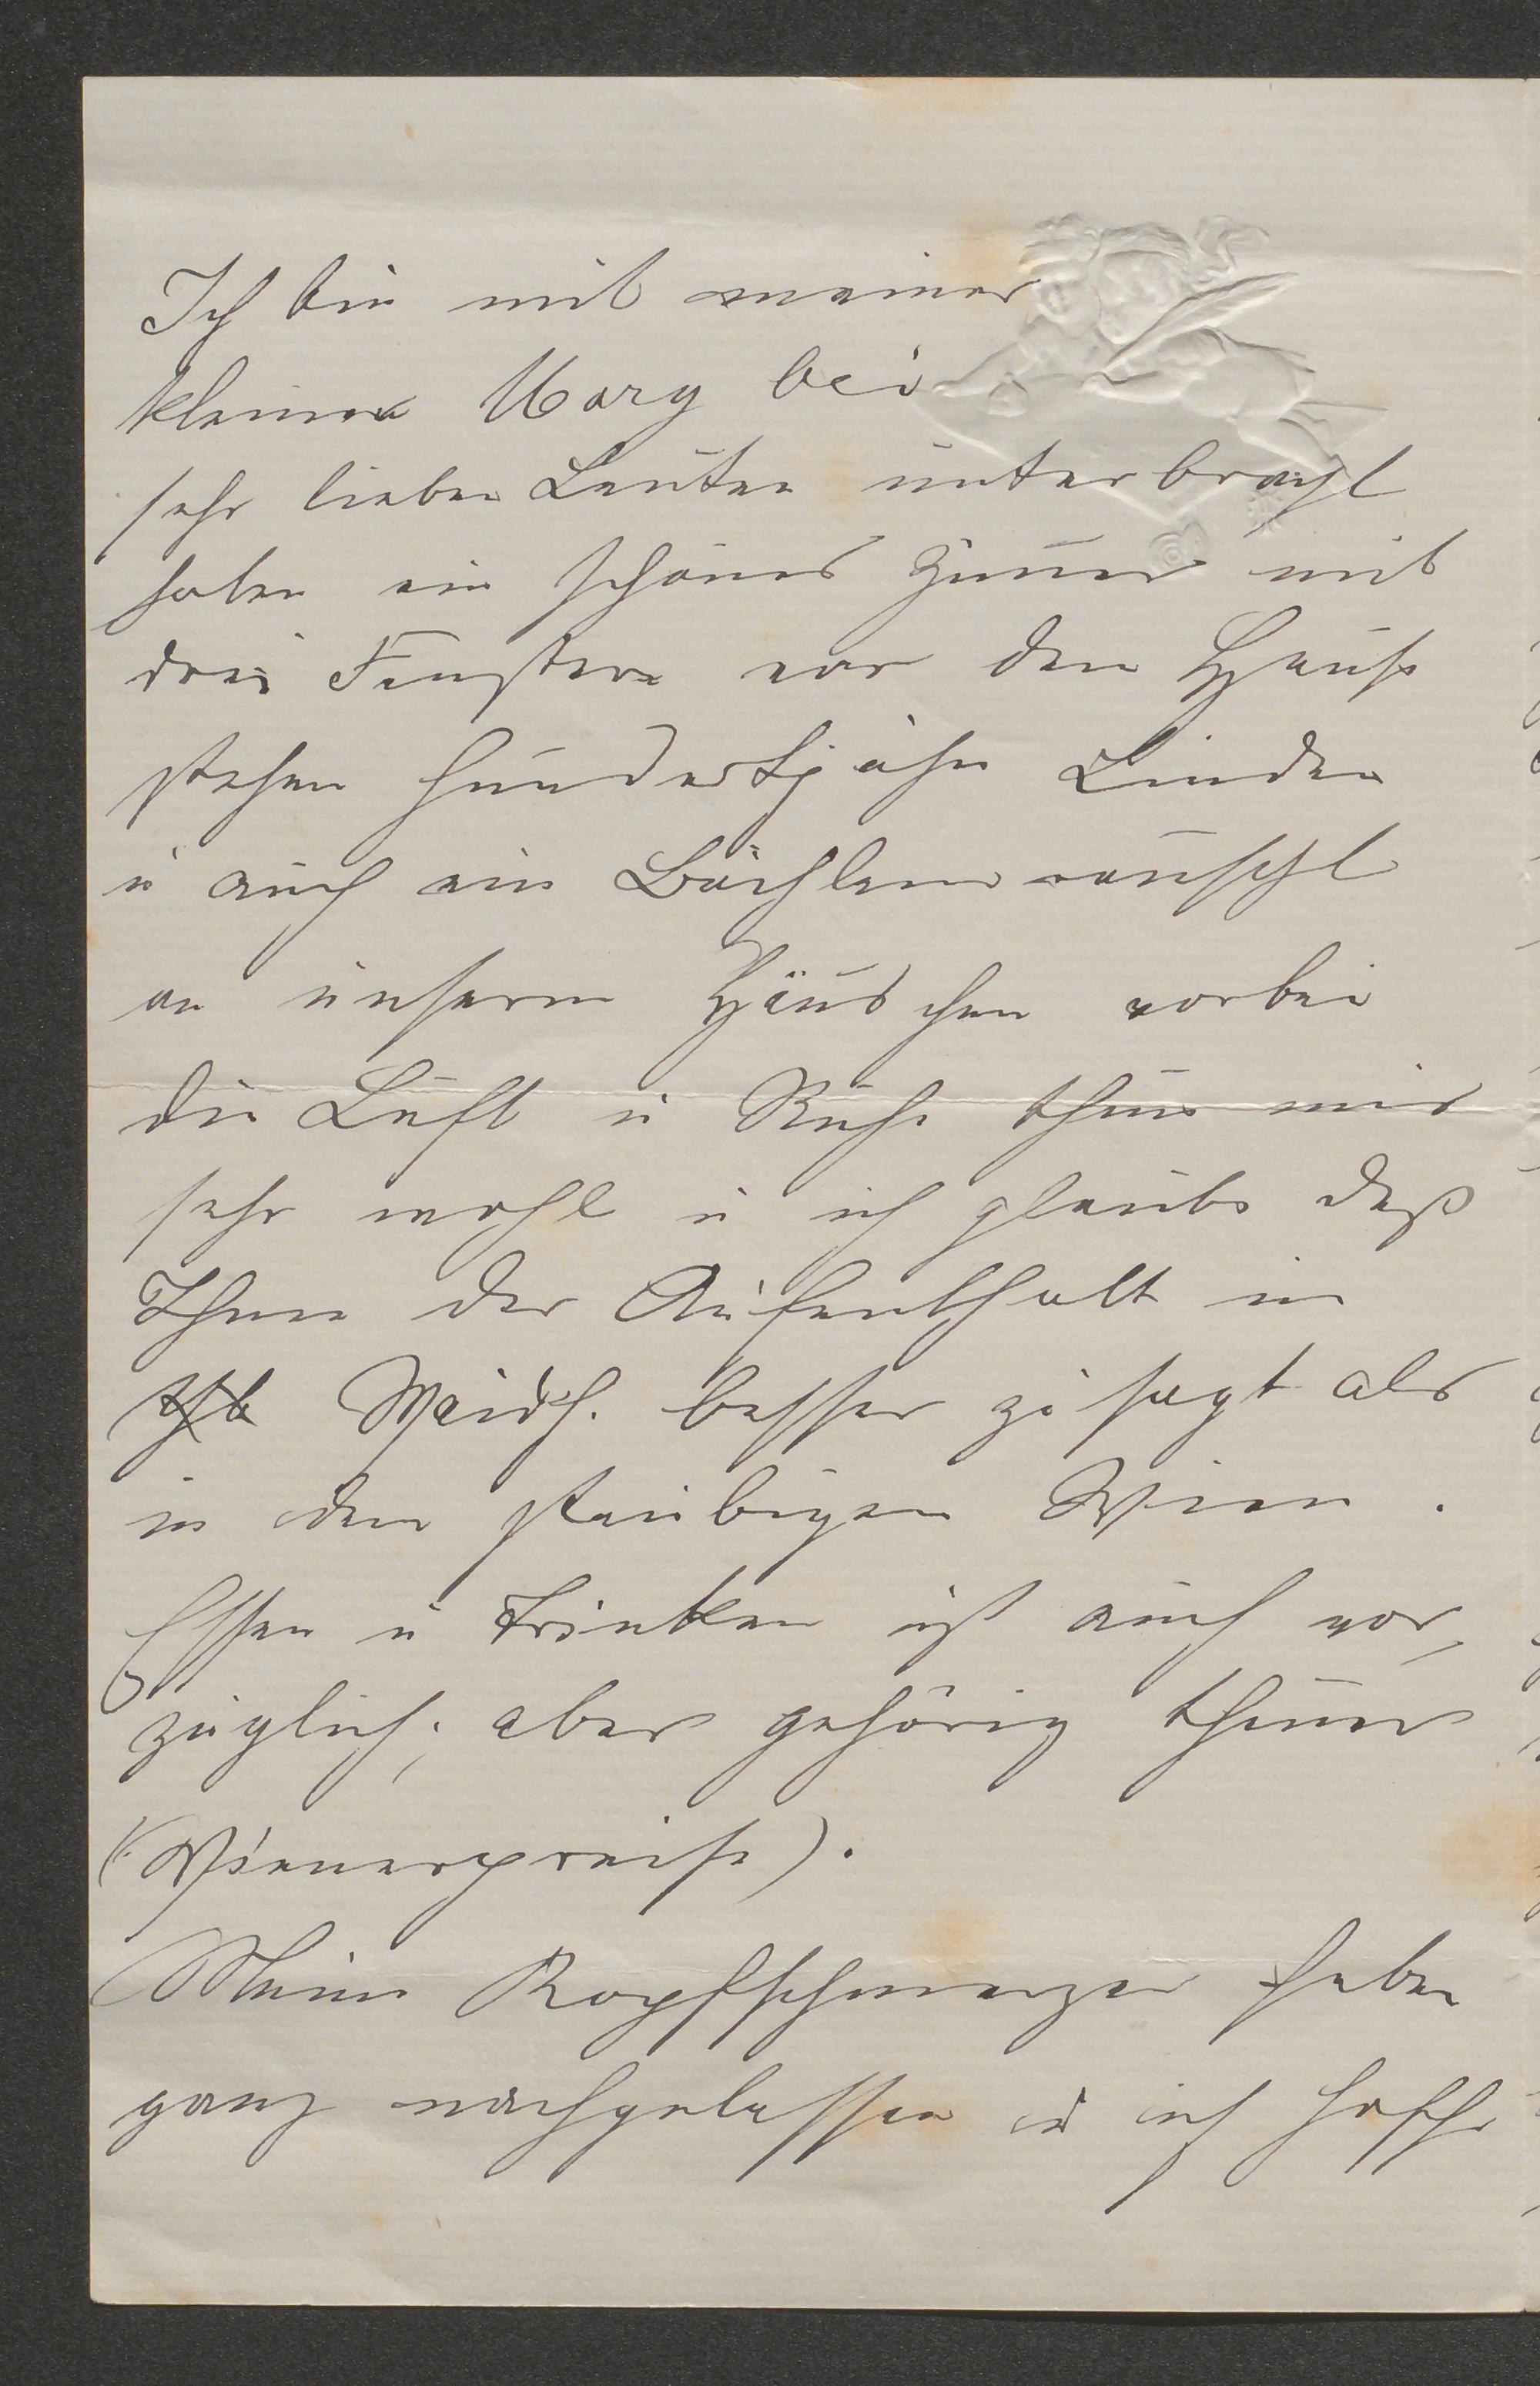 Ich bin mit meiner
kleinen Mary bei
sehr lieben Leuten unterbracht
haben ein schönes Zimmer mit
drei Fenstern vor dem Hause
stehen hundertjähr Linden
u auch ein Bächlein rauscht
an unserm Häuschen vorbei
die Luft u Ruhe thun mir
sehr wohl u ich glaube daß
Ihnen der Aufenthalt in
Waidh. besser zusagt als
in dem staubigen Wien.
Essen u Trinken ist auch vor,
züglich; aber gehörig theuer
(Wienerpreise).
Meine Kopfschmerzen haben
ganz nachgelassen u ich hoffe